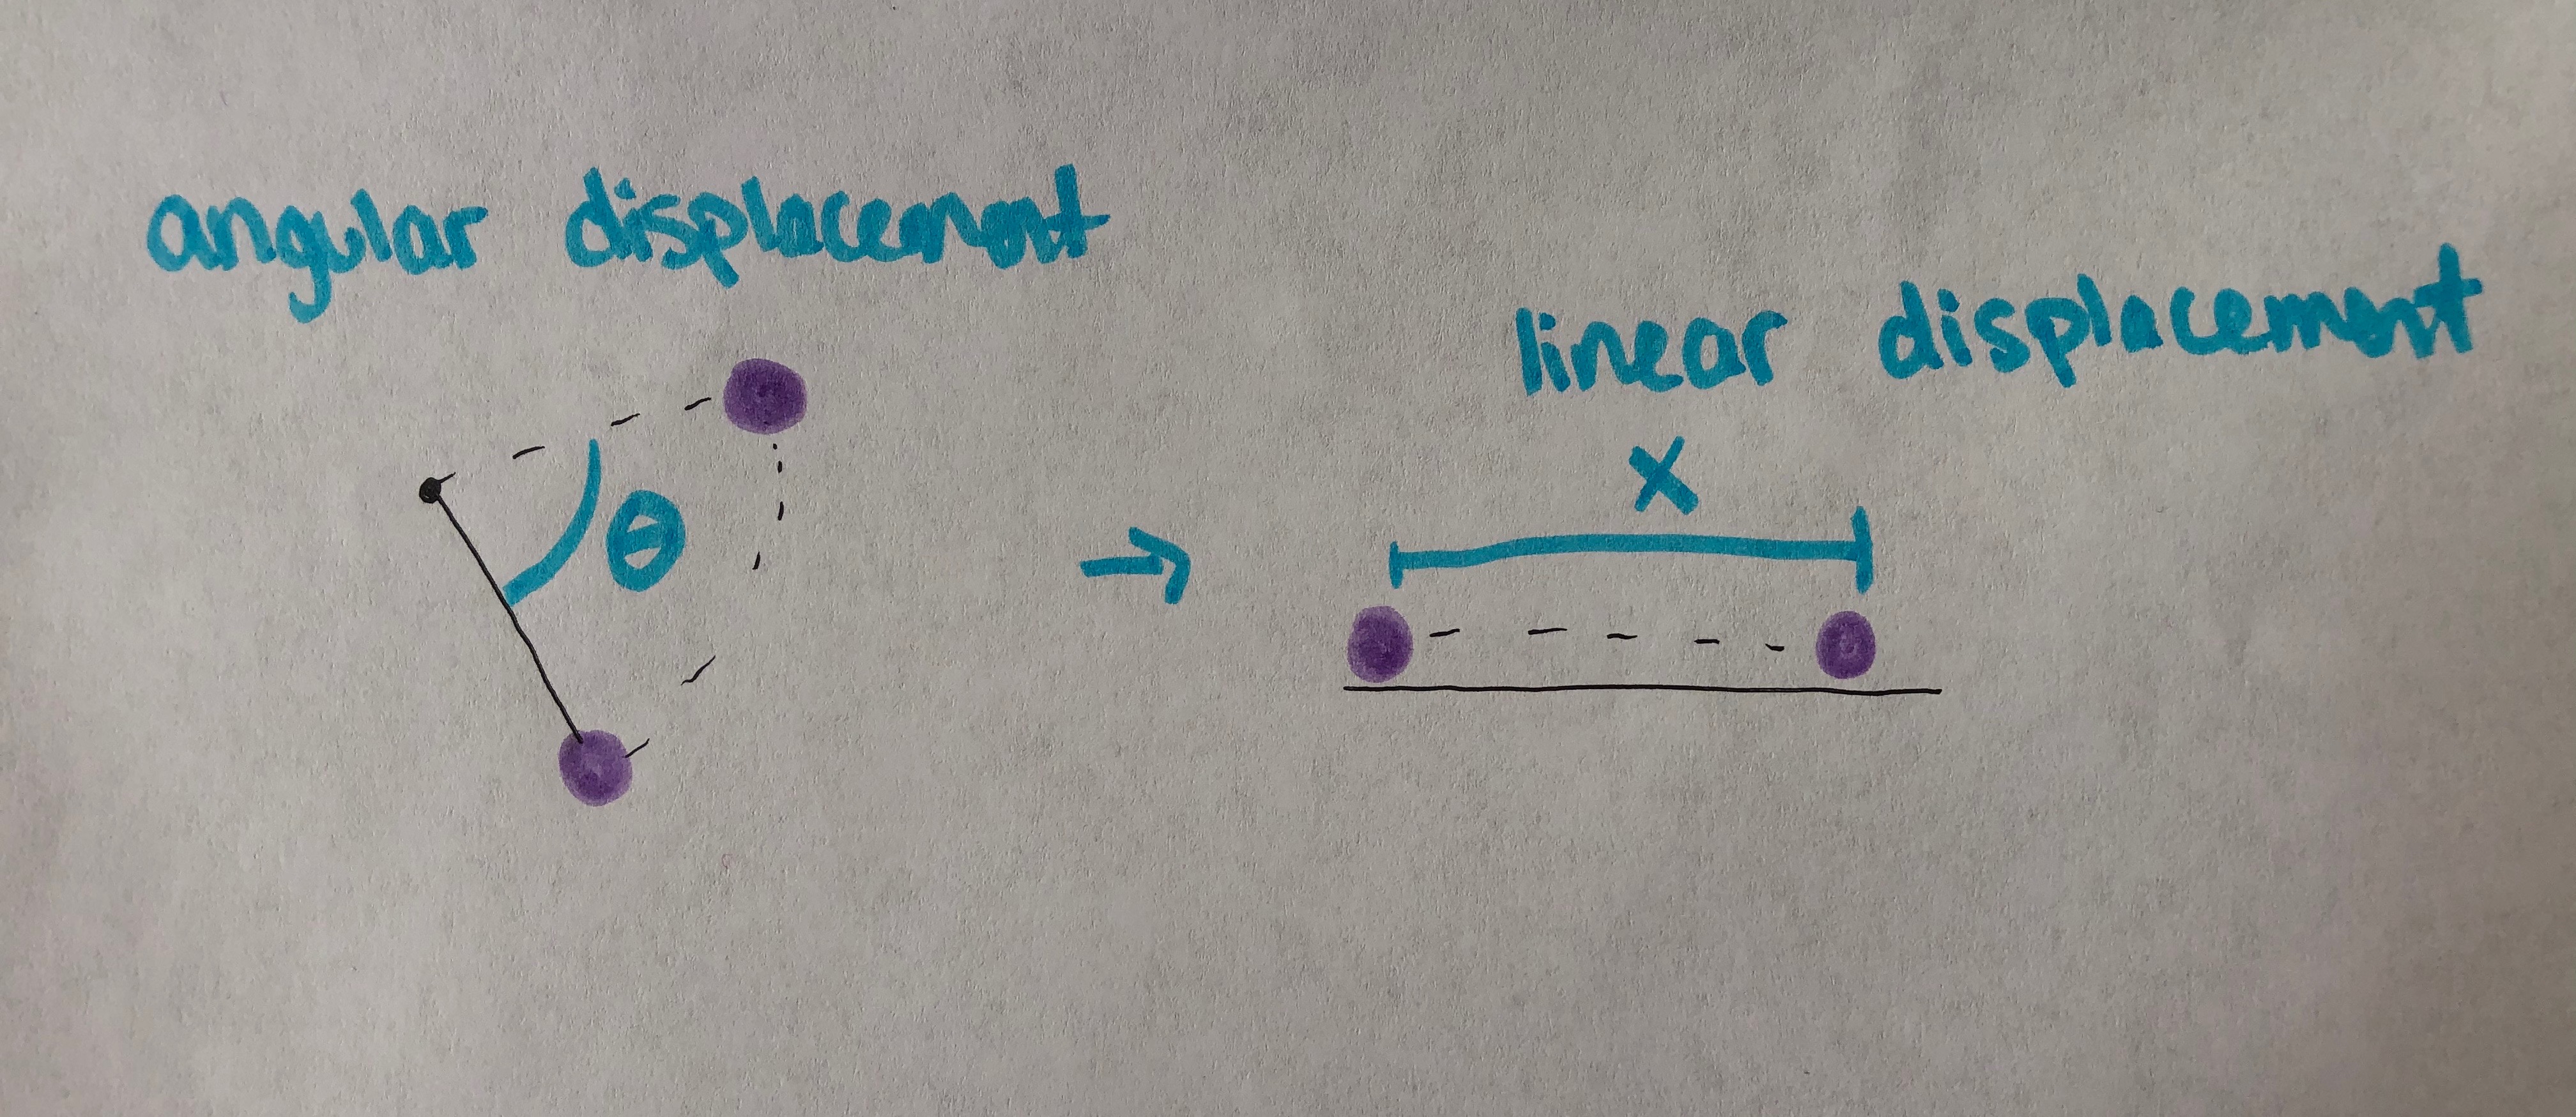 angular displacement
linear displacement
x
θ
→